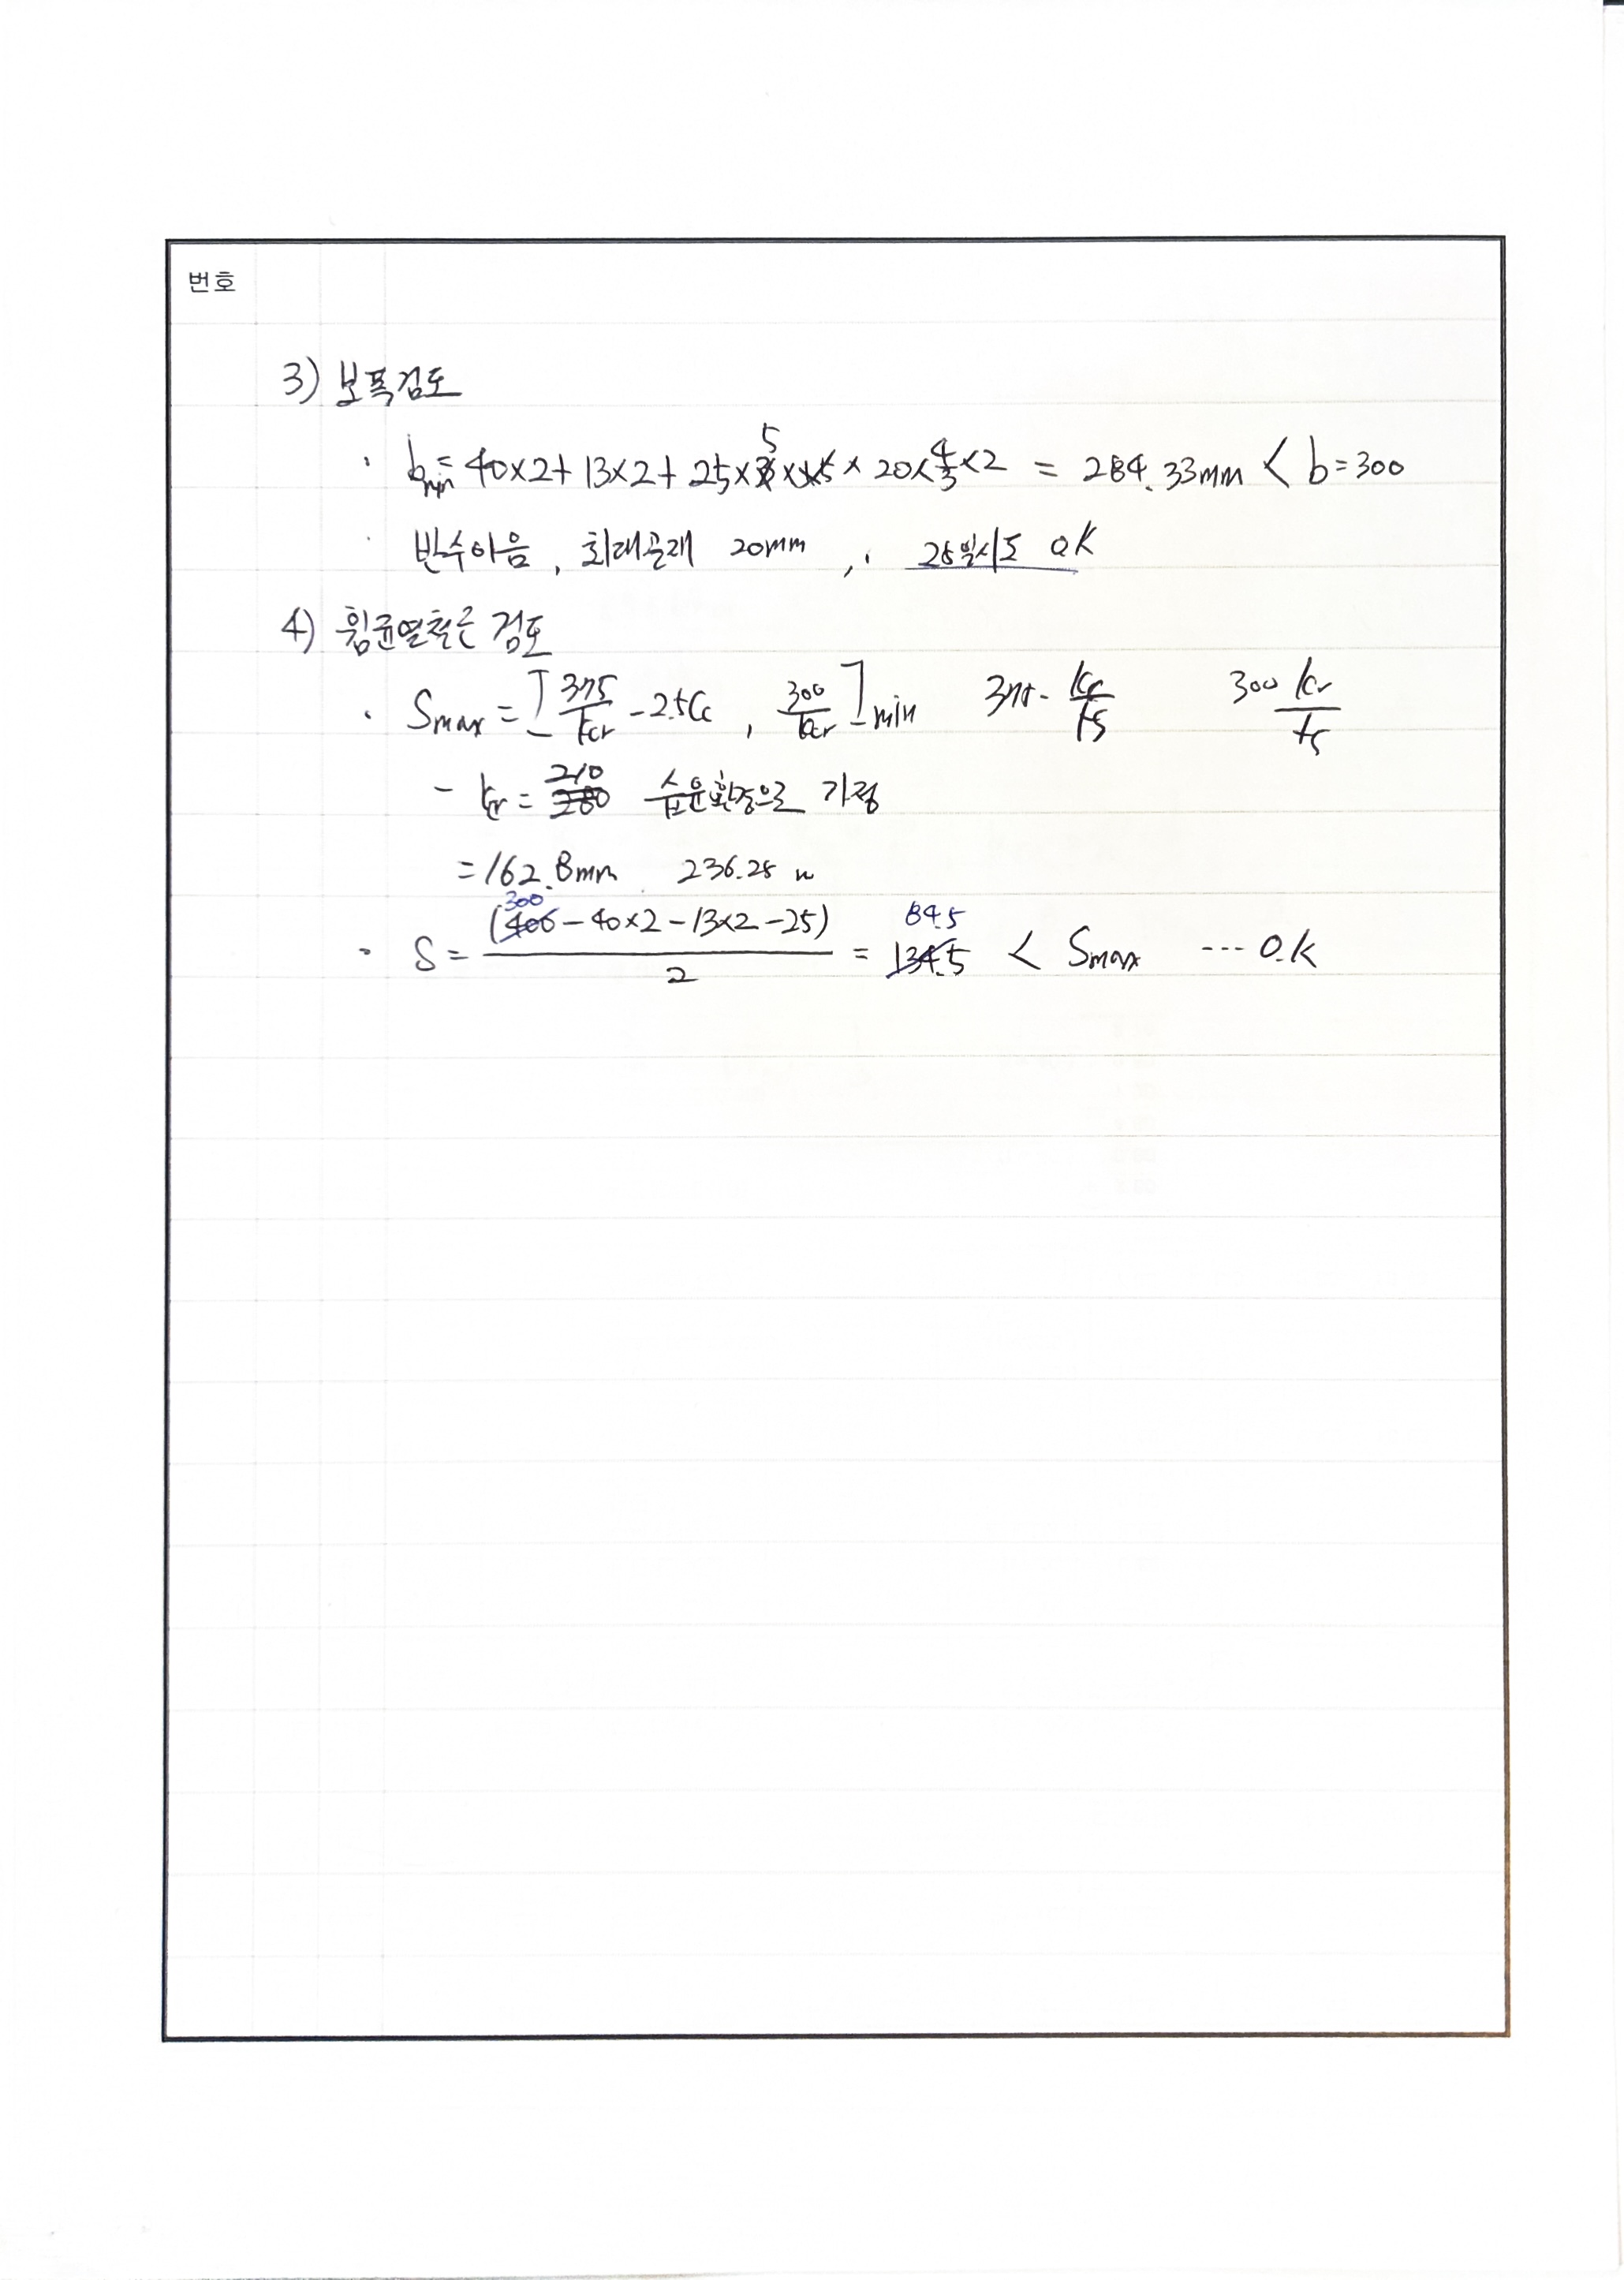 번호
3) 보폭검토
· bmin = 40×2+ 13×2+ 25×5 × 20×4/3×2 = 284.33mm < b=300
· 반수아음, 최대골재 20mm, · 28일시도 OK
4) 휨균열철근 검토
· Smax = [375/kcr - 2.5Cc, 300/kcr]min 375· kcr/fs 300 kcr/fs
- kcr = 210 습윤환경으로 가정
= 162.8mm 236.28 〃
· S = (300 - 40×2 - 13×2 - 25)/2 = 84.5 < Smax ··· O.K